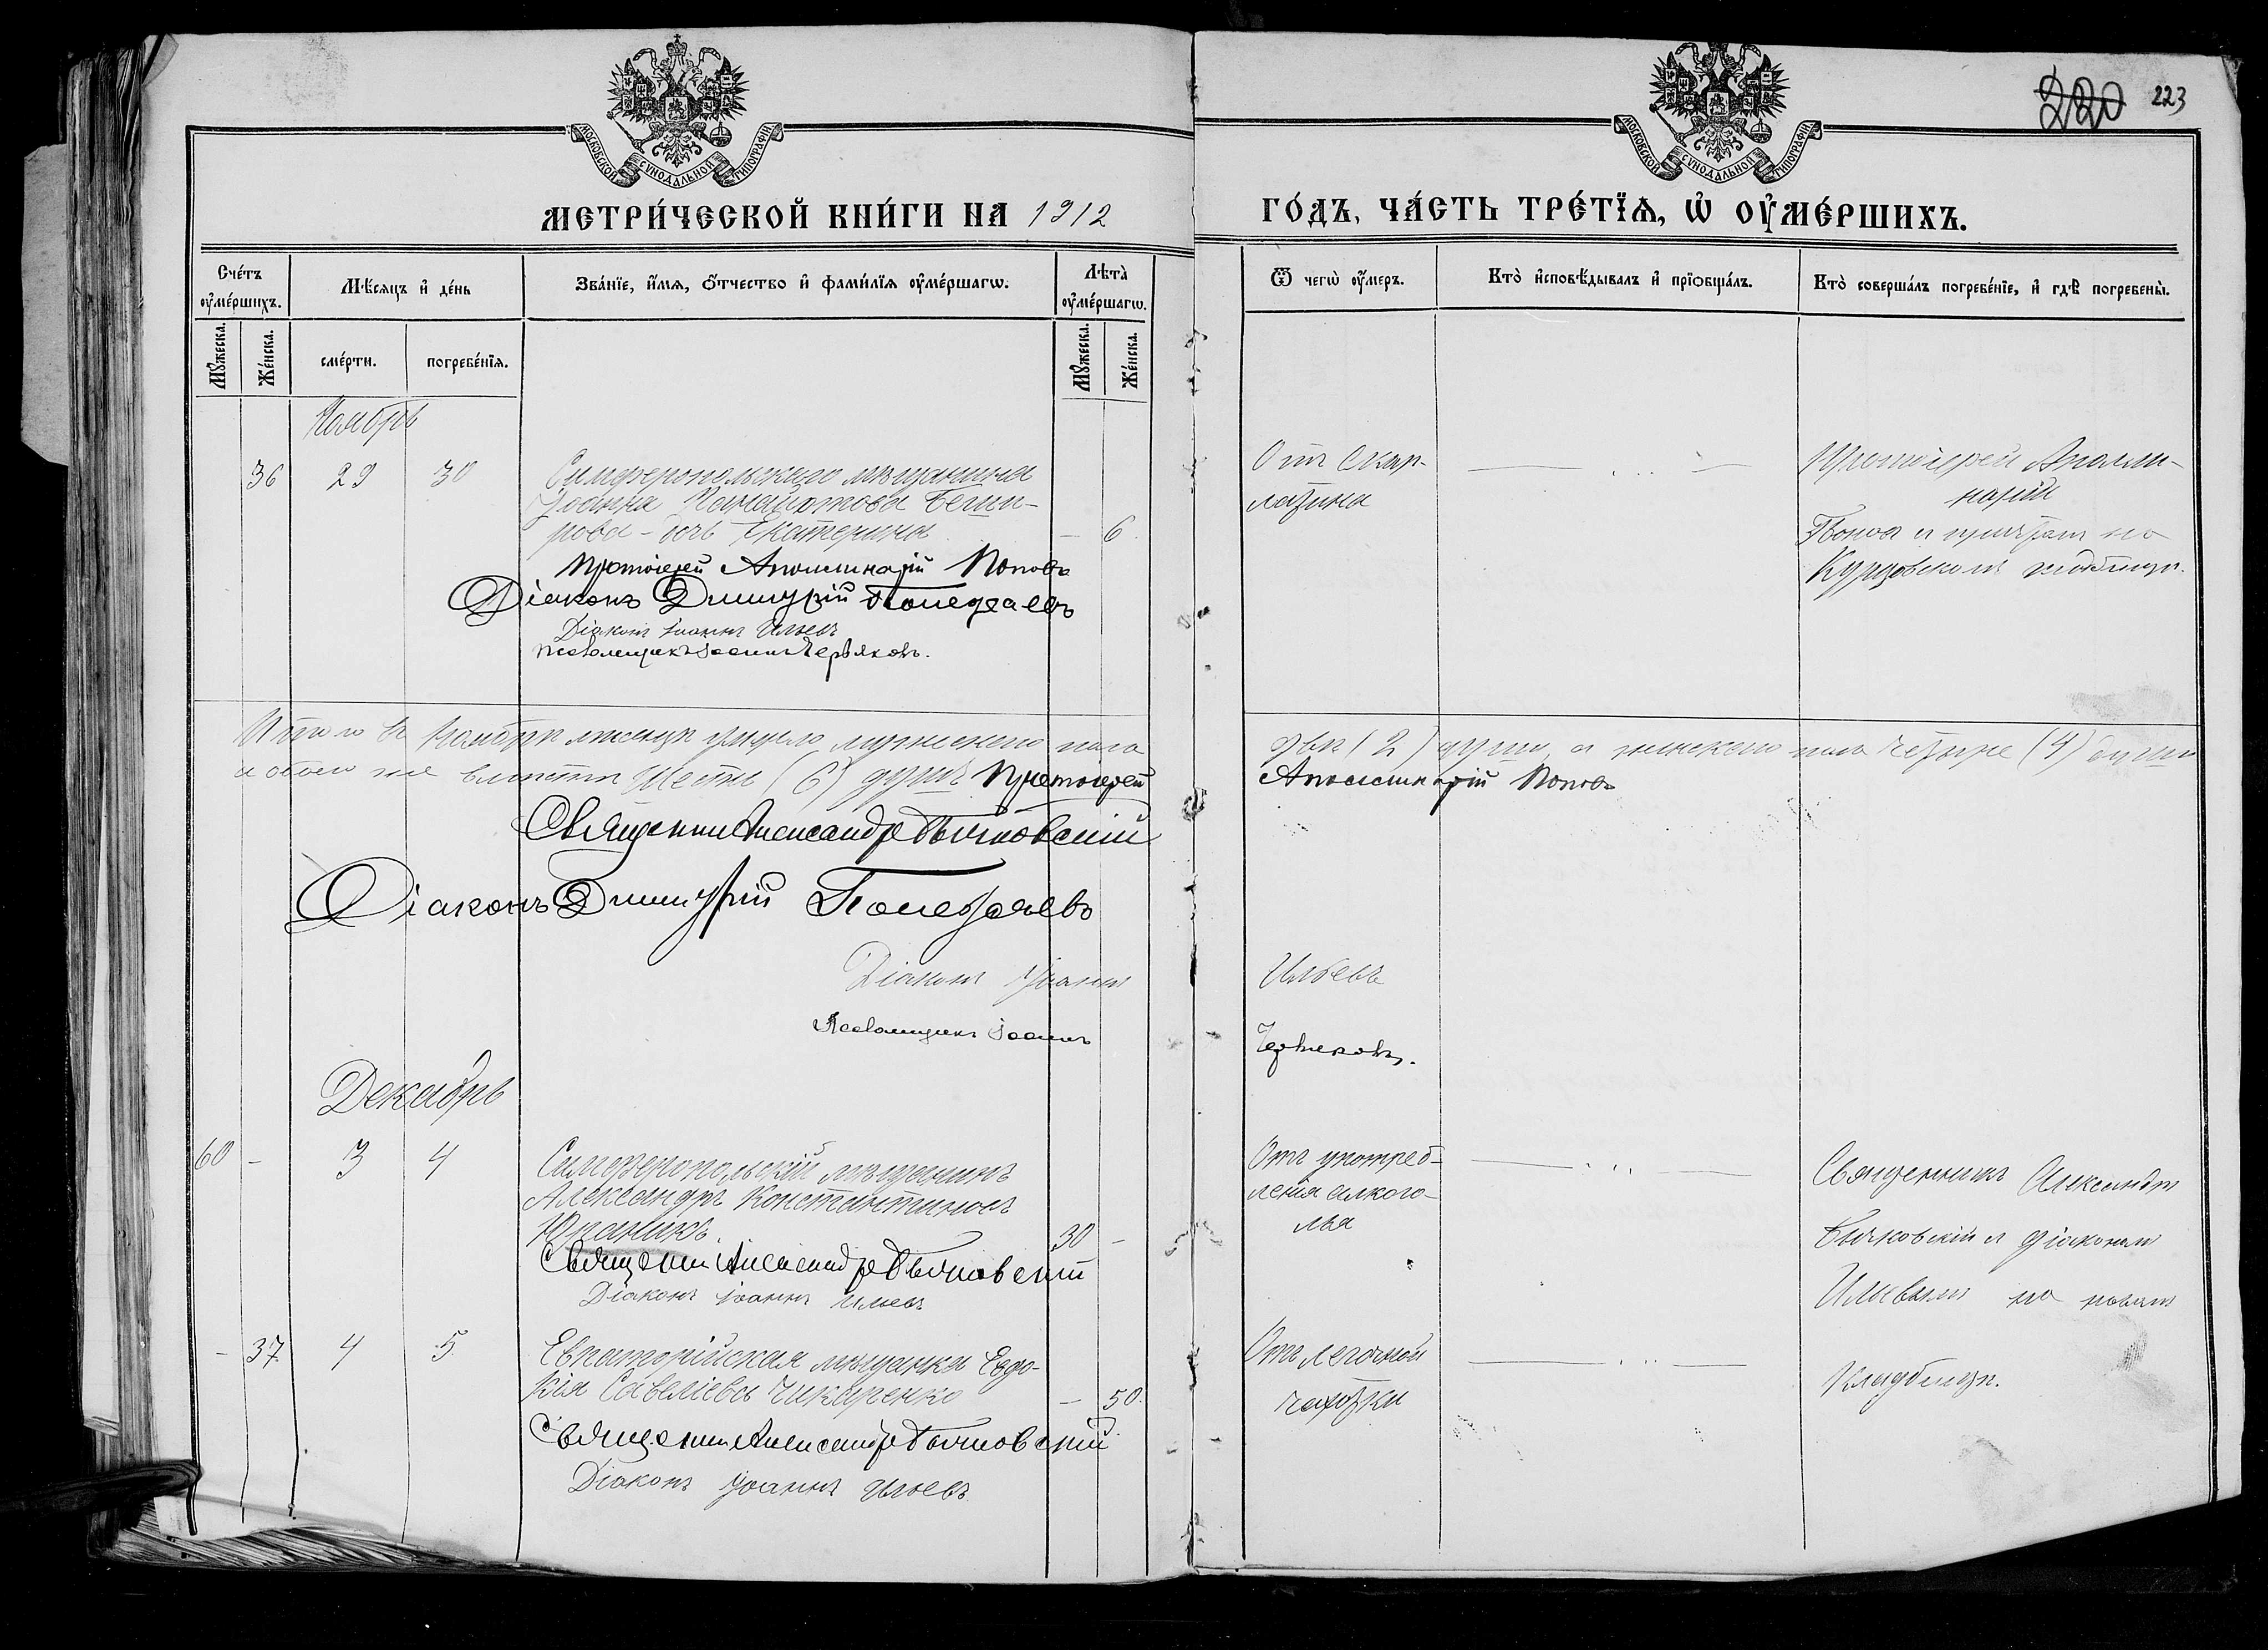 МОСКОВСКОЙ СУНОДАЛЬНОЙ ТИПОГРАФІИ
МОСКОВСКОЙ СУНОДАЛЬНОЙ ТИПОГРАФІИ
220 223
МЕТРИ́ЧЕСКОЙ КНИ́ГИ НА 1912
ГО́ДЪ, ЧА́СТЬ ТРЕ́ТЇѦ, Ѡ҆ ОУ҆МЕ́РШИХЪ.
Сче́тъ оу҆ме́ршихъ.
Мѣ́сѧцъ и҆ де́нь
Зва́нїе, и҆́мѧ, ѻ҆́тчество и҆ фами́лїѧ оу҆ме́ршагѡ.
Лѣ́та оу҆ме́ршагѡ.
Ѿ чегѡ̀ оу҆́меръ.
Кто̀ и҆сповѣ́дывалъ и҆ прїѻбща́лъ.
Кто̀ соверша́лъ погребе́нїе, и҆ гдѣ̀ погребены̀.
Мꙋ́жеска.
Же́нска.
сме́рти.
погребе́нїѧ.
Мꙋ́жеска.
Же́нска.
Ноябрь
36 29 30 Симферопольскаго мѣщанина
Іоанна Панаіотова Беши-
рова - дочь Екатерина — 6.
Протоіерей Аполлинарій Поповъ
Діаконъ Димитрій
Діаконъ Іоаннъ Ильевъ
Псаломщикъ Іоаннъ Червяковъ.
Отъ скар-
латина
Протоіерей Аполли-
нарій
Поповъ и причтъ на
Курцовскомъ кладбищѣ.
Итого въ Ноябрѣ мѣсяцѣ умерло мужескаго пола
двѣ (2) души, а женскаго пола четыре (4) души
а обоего же вмѣстѣ шесть (6) душъ Протоіерей
Аполлинарій Поповъ
Священникъ Александръ Бычковскій
Діаконъ Димитрій
Діаконъ Іоаннъ
Ильевъ
Псаломщикъ Іоаннъ
Червяковъ.
Декабрь
60 - 3 4 Симферопольскій мѣщанинъ
Александръ Константиновъ
30 -
Священникъ Александръ Бычковскій
Діаконъ Іоаннъ Ильевъ
Отъ употреб-
ленія алкого-
лья
Священникъ Александръ
Бычковскій и діакономъ
Ильевымъ на новомъ
кладбищѣ.
- 37. 4 5. Евпаторійская мѣщанка Евдо-
кія Савеліева Чикаренко — 50.
Священникъ Александръ Бычковскій
Діаконъ Іоаннъ Ильевъ
Отъ легочной
чахотки